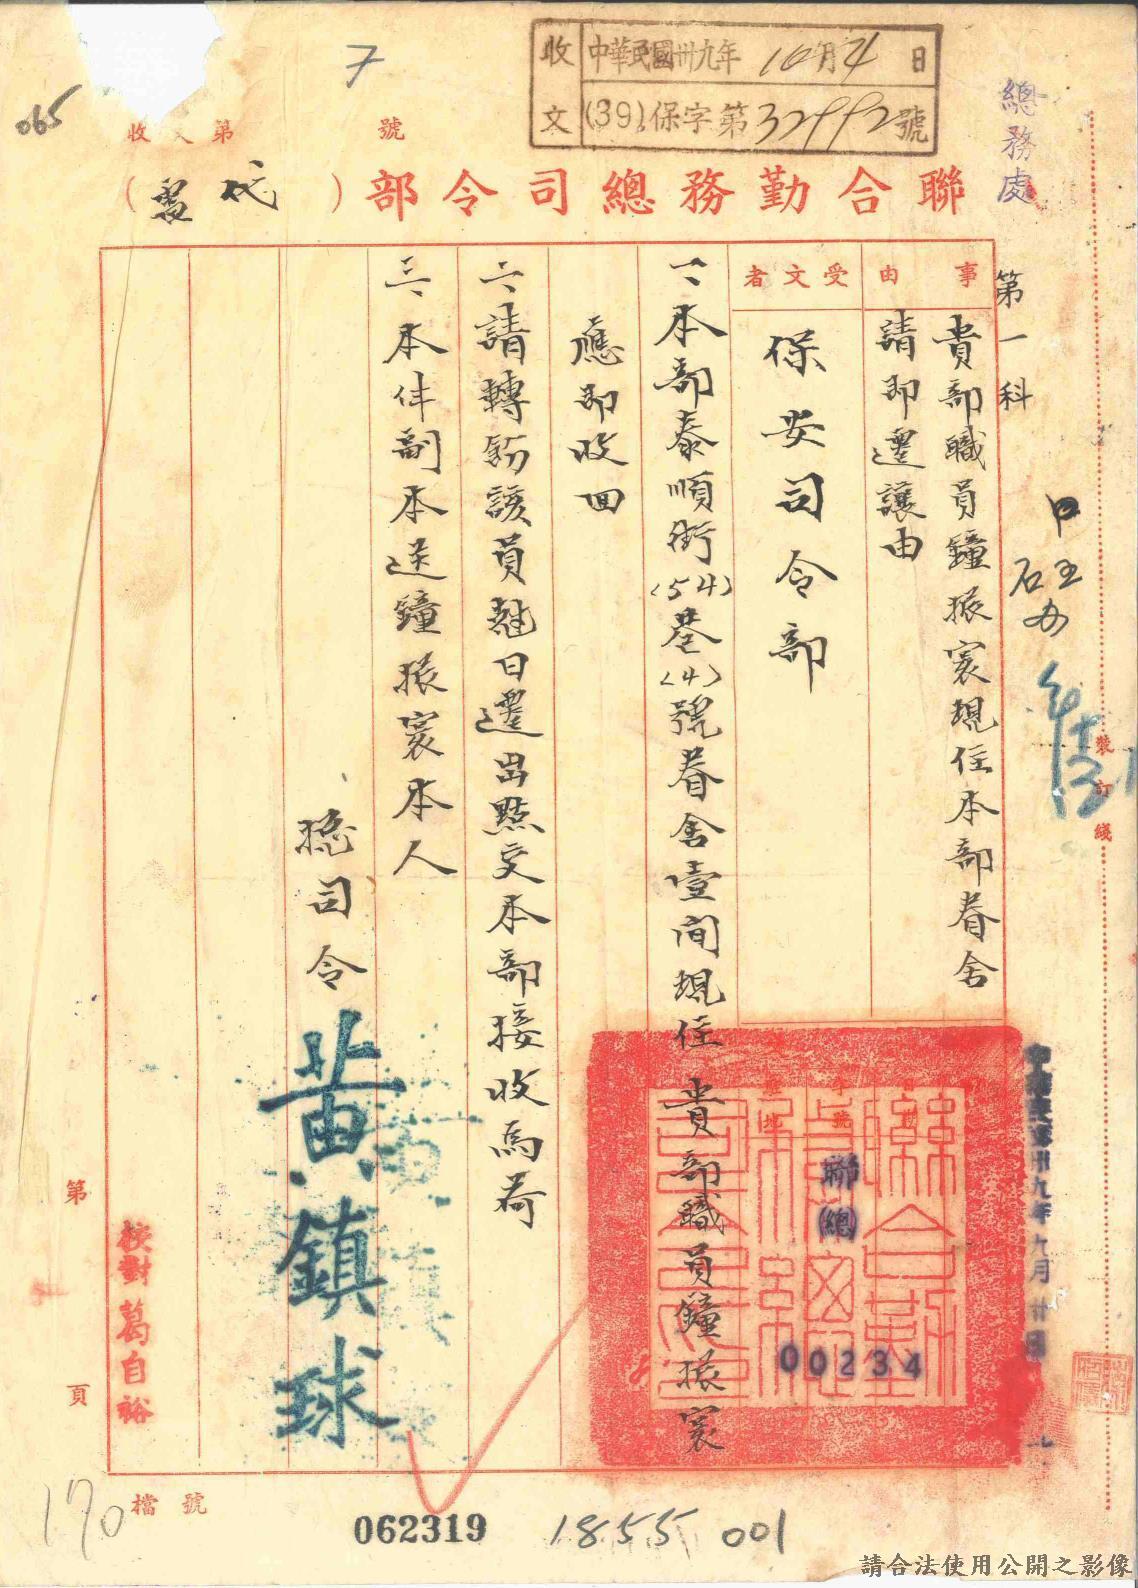 065
7
收文
中華民國卅九年10月4日
(39)保字第32992號
總務處
收文第
號
聯合勤務總司令部(代電)
第一科
事由
貴部職員鐘振寰現住本部眷舍
請即遷讓由
受文者
保安司令部
一、本部泰順街(54)巷(4)號眷舍壹間現住 貴部職員鐘振寰
應即收回
二、請轉飭該員尅日遷出點交本部接收為荷
三、本件副本送鐘振寰本人
總司令
黃鎮球
聯(總)
00234
中華民國卅九年九月卅日
裝訂綫
第
頁
校對葛自裕
檔號
170
062319
1855
001
請合法使用公開之影像